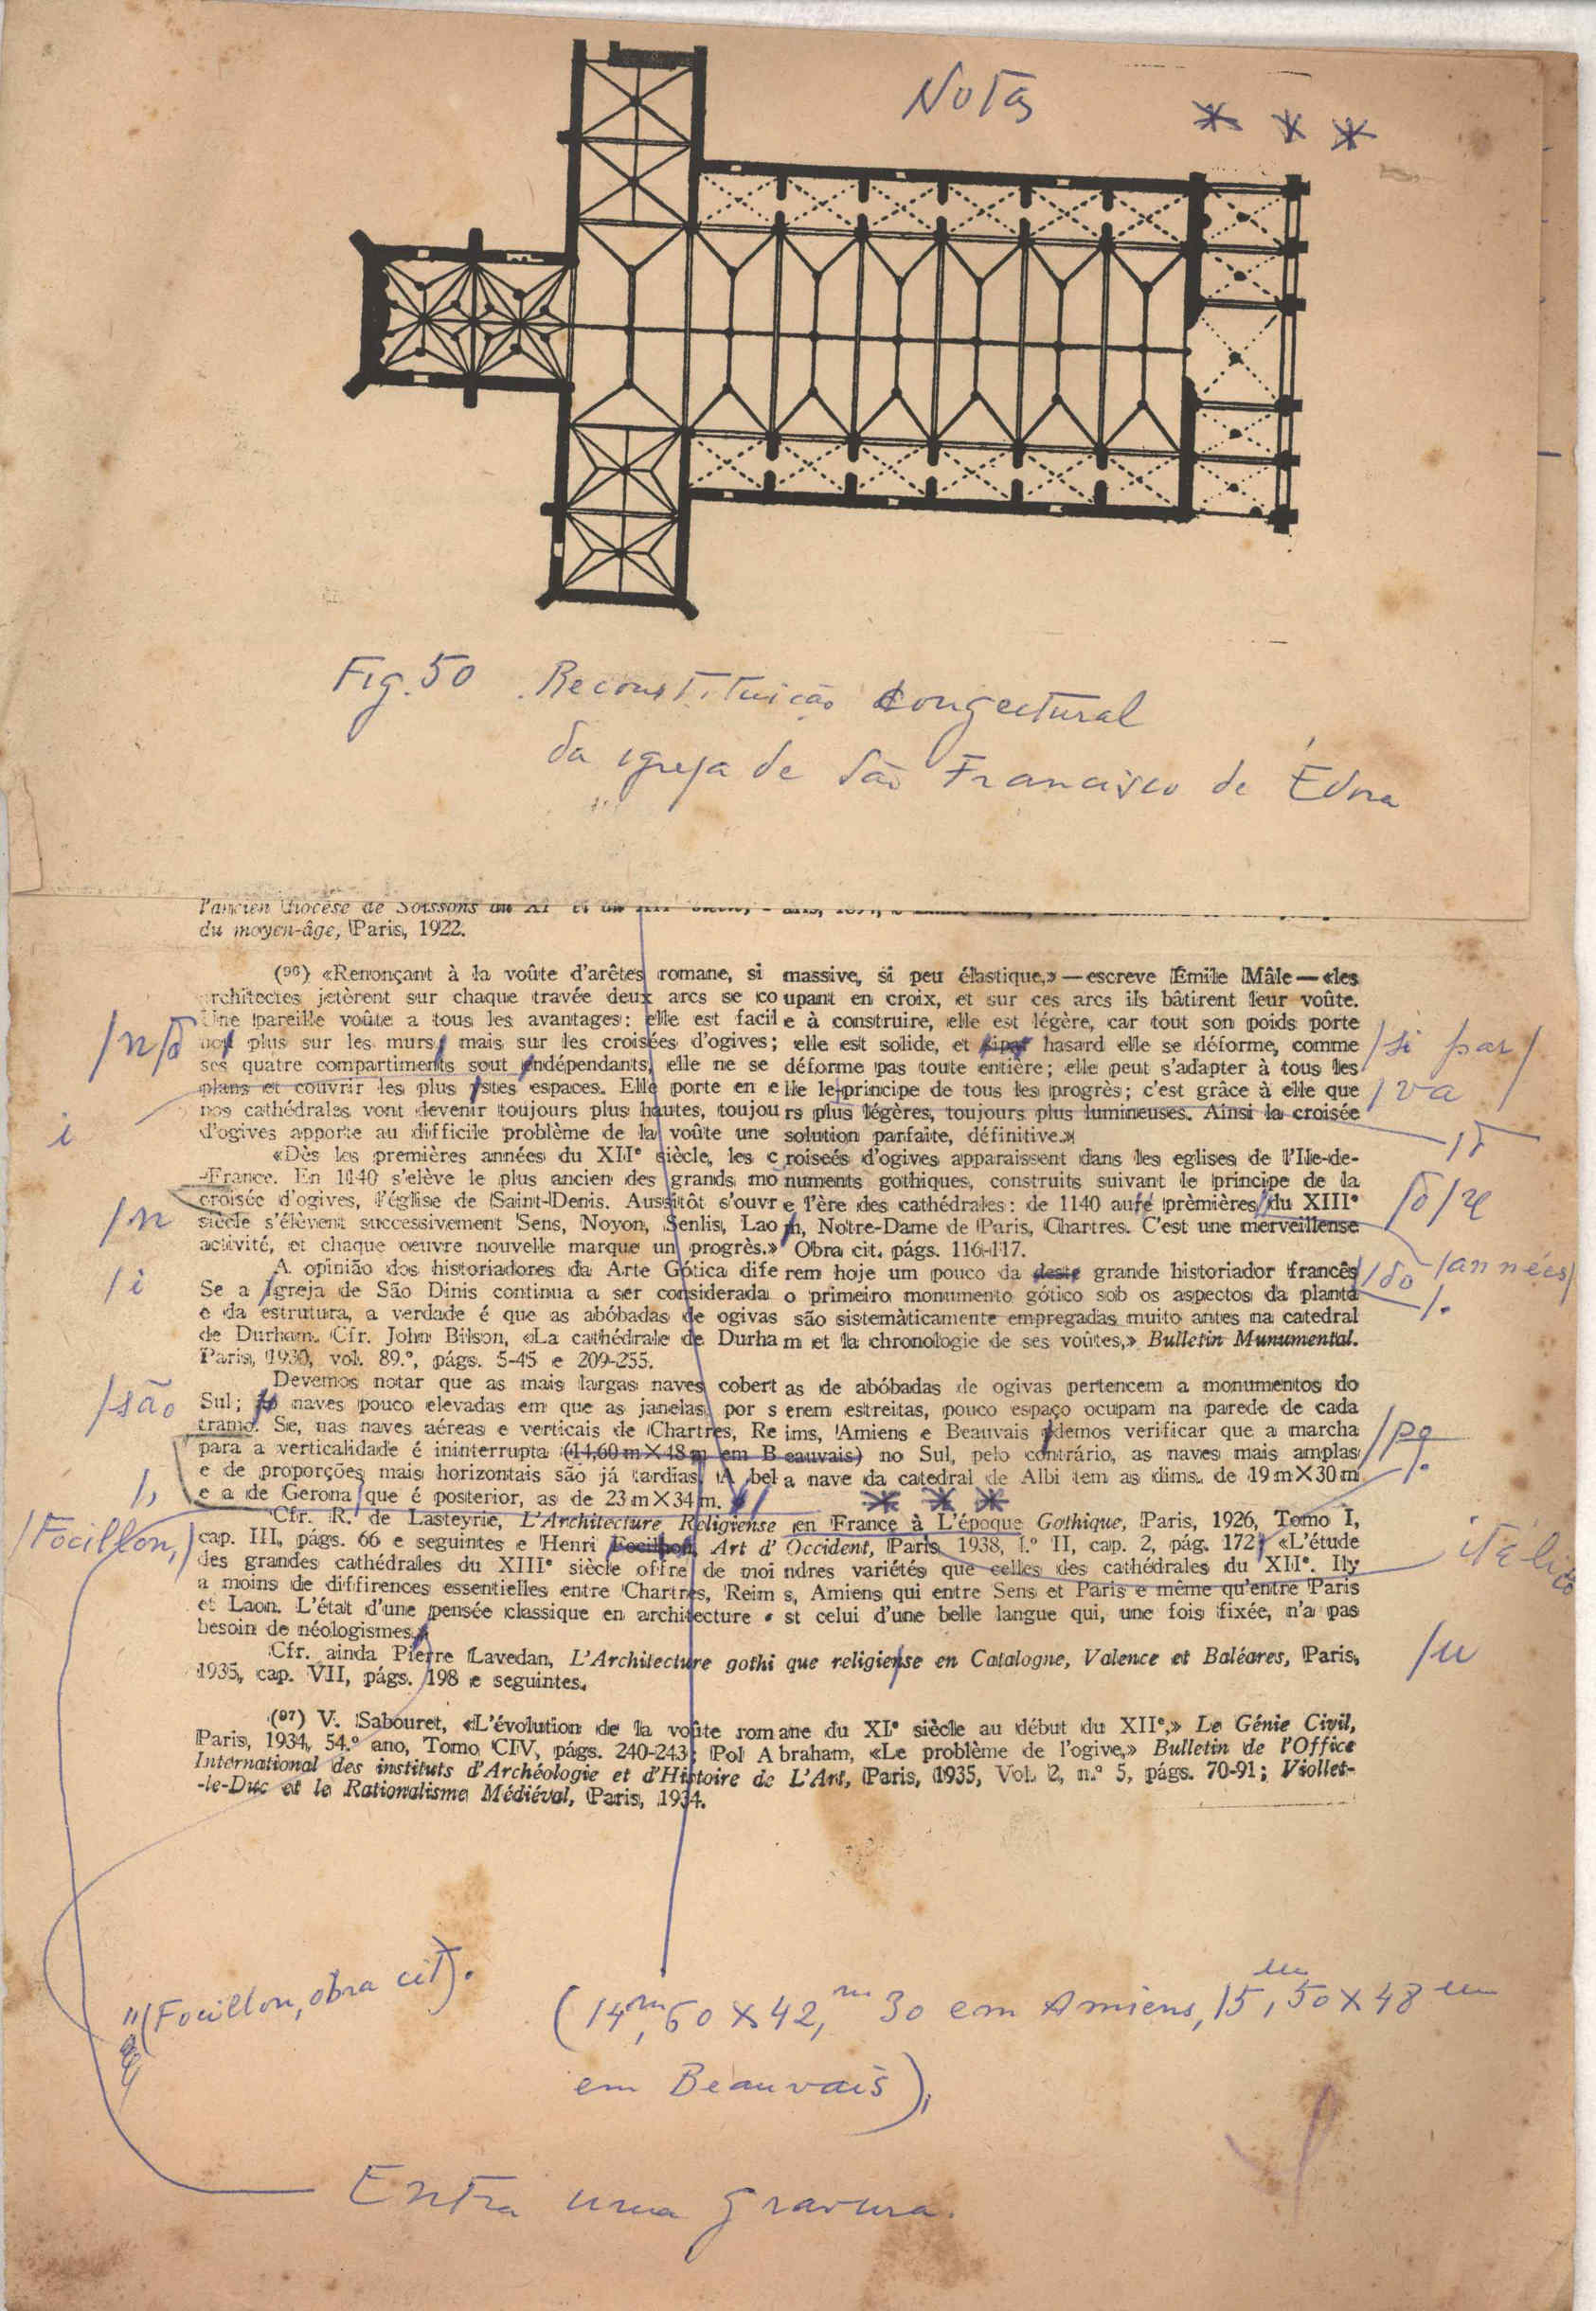 Notas
* * *
Fig. 50 Reconstituição Congectural
da igreja de São Francisco de Évora
l'ancien diocèse de Soissons au XI et au XII
du moyen-âge, Paris, 1922.
(96) «Renonçant à la voûte d'arêtes romane, si massive, si peu élastique,» — escreve Émile Mâle — «les
architectes jetèrent sur chaque travée deux arcs se coupant en croix, et sur ces arcs ils bâtirent leur voûte.
Une pareille voûte a tous les avantages: elle est facile à construire, elle est légère, car tout son poids porte
/n/õ
plus sur les murs, mais sur les croisées d'ogives; elle est solide, et hasard elle se déforme, comme
/si par/
ses quatre compartiments sout indépendants, elle ne se déforme pas toute entière; elle peut s'adapter à tous les
plans et couvrir les plus stes espaces. Elle porte en elle le principe de tous les progrès; c'est grâce à elle que
/va/
nos cathédrales vont devenir toujours plus hautes, toujours plus légères, toujours plus lumineuses. Ainsi la croisée
i
d'ogives apporte au difficile problème de la voûte une solution parfaite, définitive.»
«Dès les premières années du XIIe siècle, les croiseés d'ogives apparaissent dans les eglises de l'Ile-de-
-France. En 1140 s'elève le plus ancien des grands monuments gothiques, construits suivant le principe de la
croisée d'ogives, l'église de Saint-Denis. Aussitôt s'ouvre l'ère des cathédrales: de 1140 prèmières du XIIIe
/n
siècle s'élèvent successivement Sens, Noyon, Senlis, Laon, Notre-Dame de Paris, Chartres. C'est une merveillense
activité, et chaque oeuvre nouvelle marque un progrès.» Obra cit. págs. 116-117.
/années/
A opinião dos historiadores da Arte Gótica diferem hoje um pouco da deste grande historiador francês
/i
Se a Igreja de São Dinis continua a ser considerada o primeiro monumento gótico sob os aspectos da planta
/.
e da estrutura, a verdade é que as abóbadas de ogivas são sistemàticamente empregadas muito antes na catedral
de Durham. Cfr. John Bilson, «La cathédrale de Durham et la chronologie de ses voûtes,» Bulletin Munumental.
Paris, 1930, vol. 89.º, págs. 5-45 e 209-255.
Devemos notar que as mais largas naves cobertas de abóbadas de ogivas pertencem a monumentos do
/são
Sul; naves pouco elevadas em que as janelas, por serem estreitas, pouco espaço ocupam na parede de cada
tramo. Se, nas naves aéreas e verticais de Chartres, Reims, Amiens e Beauvais pdemos verificar que a marcha
para a verticalidade é ininterrupta (14,60 m × 48 m em Beauvais) no Sul, pelo contrário, as naves mais amplas
e de proporções mais horizontais são já tardias. A bela nave da catedral de Albi tem as dims. de 19 m × 30 m
/.
/,
e a de Gerona que é posterior, as de 23 m × 34 m.
* * *
Cfr. R. de Lasteyrie, L'Architecture Religiense en France à L'époque Gothique, Paris, 1926, Tomo I,
/Focillon,/
cap. III, págs. 66 e seguintes e Henri Focillon, Art d'Occident, Paris 1938, l.º II, cap. 2, pág. 172; «L'étude
itálico
des grandes cathédrales du XIIIe siècle offre de moindres variétés que celles des cathédrales du XIIe. Ily
a moins de diffirences essentielles entre Chartres, Reims, Amiens qui entre Sens et Paris e même qu'entre Paris
et Laon. L'état d'une pensée classique en architecture est celui d'une belle langue qui, une fois fixée, n'a pas
besoin de néologismes.
Cfr. ainda Pierre Lavedan, L'Architecture gothique religiense en Catalogne, Valence et Baléares, Paris,
/u
1935, cap. VII, págs. 198 e seguintes.
(97) V. Sabouret, «L'évolution de la voûte romane du XIe siècle au début du XIIe,» Le Génie Civil,
Paris, 1934, 54.º ano, Tomo CIV, págs. 240-243; Pol Abraham, «Le problème de l'ogive,» Bulletin de l'Office
International des instituts d'Archéologie et d'Histoire de L'Art, Paris, 1935, Vol. 2, n.º 5, págs. 70-91; Viollet-
-le-Duc et le Rationalisme Médiéval, Paris, 1934.
"(Focillon, obra cit).
(14,m60 × 42,m30 em Amiens, 15,m50 × 48 m
em Beauvais),
Entra uma gravura.